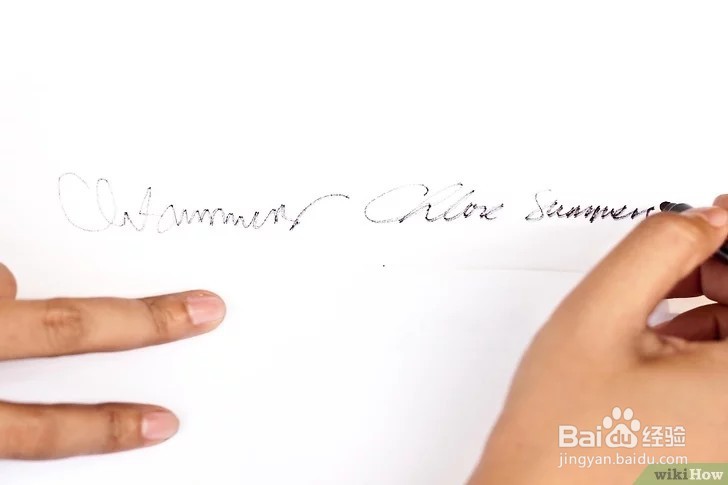 Chloe Summers
Bai du 经验
jingyan.baidu.com
wikiHow